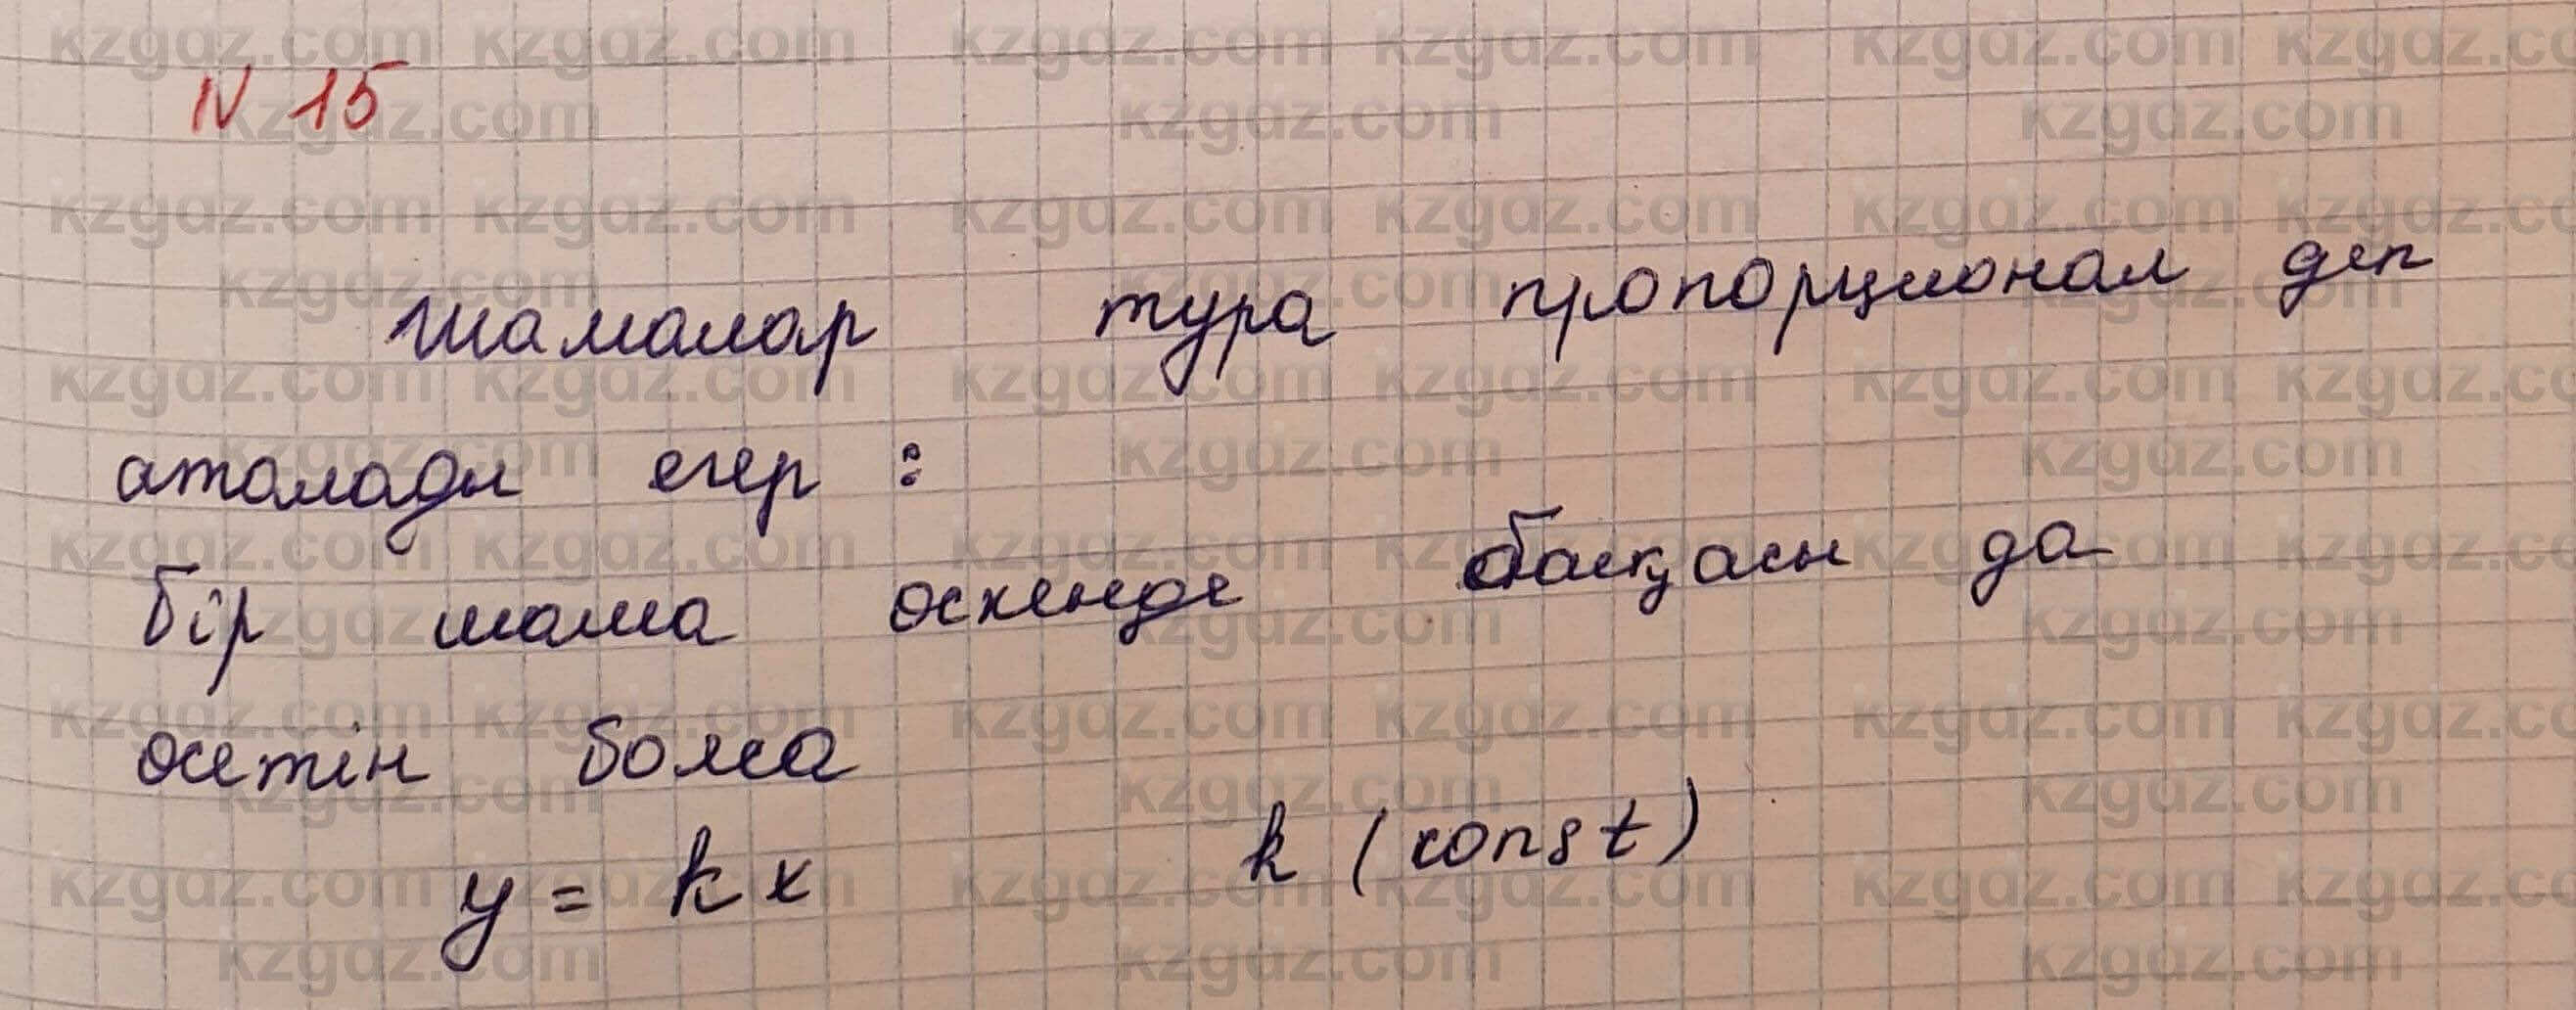 N 15
Шамалар тура пропорционал деп
аталады егер :
бір шама өскенде басқасы да
өсетін болса
y = kx k (const)